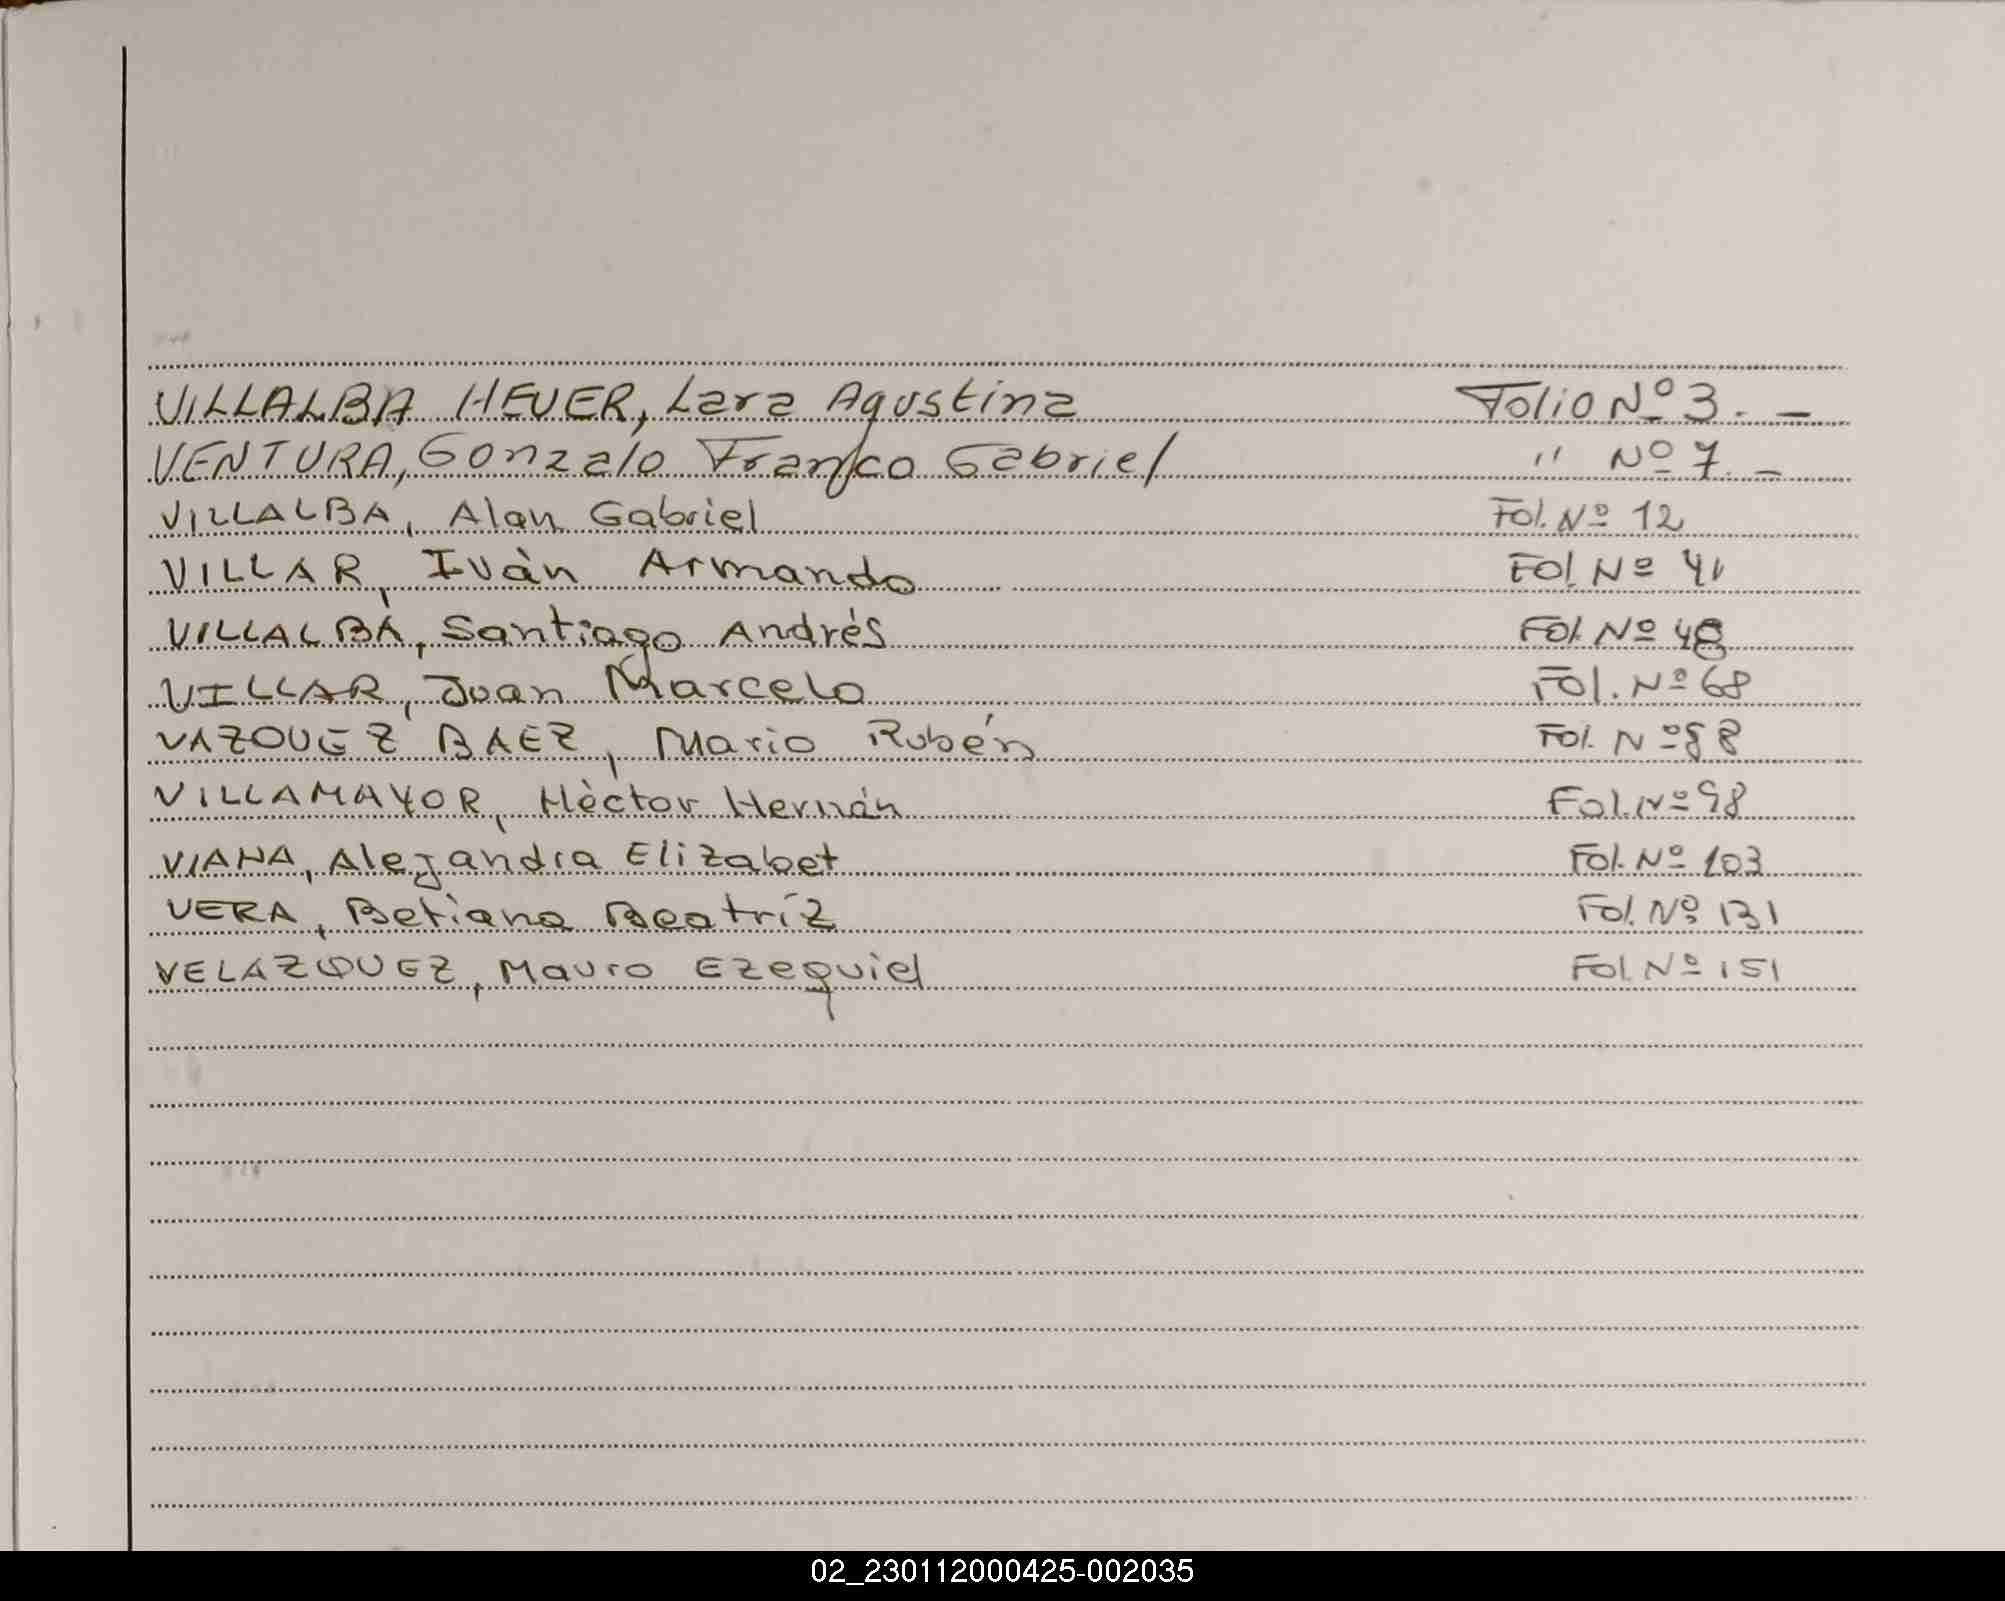 VILLALBA HEUER, Lara Agustina Folio Nº 3. —
VENTURA, Gonzalo Franco Gabriel " Nº 7. —
VILLALBA, Alan Gabriel Fol. Nº 12
VILLAR, Ivàn Armando Fol. Nº 41
VILLALBA, Santiago Andrés Fol. Nº 48
VILLAR, Juan Marcelo Fol. Nº 68
VAZQUEZ BAEZ, Mario Rubén Fol. Nº 88
VILLAMAYOR, Hèctor Hernán Fol. Nº 98
VIANA, Alejandra Elizabet Fol. Nº 103
VERA, Betiana Beatríz Fol. Nº 131
VELAZQUEZ, Mauro Ezequiel Fol. Nº 151
02_230112000425-002035